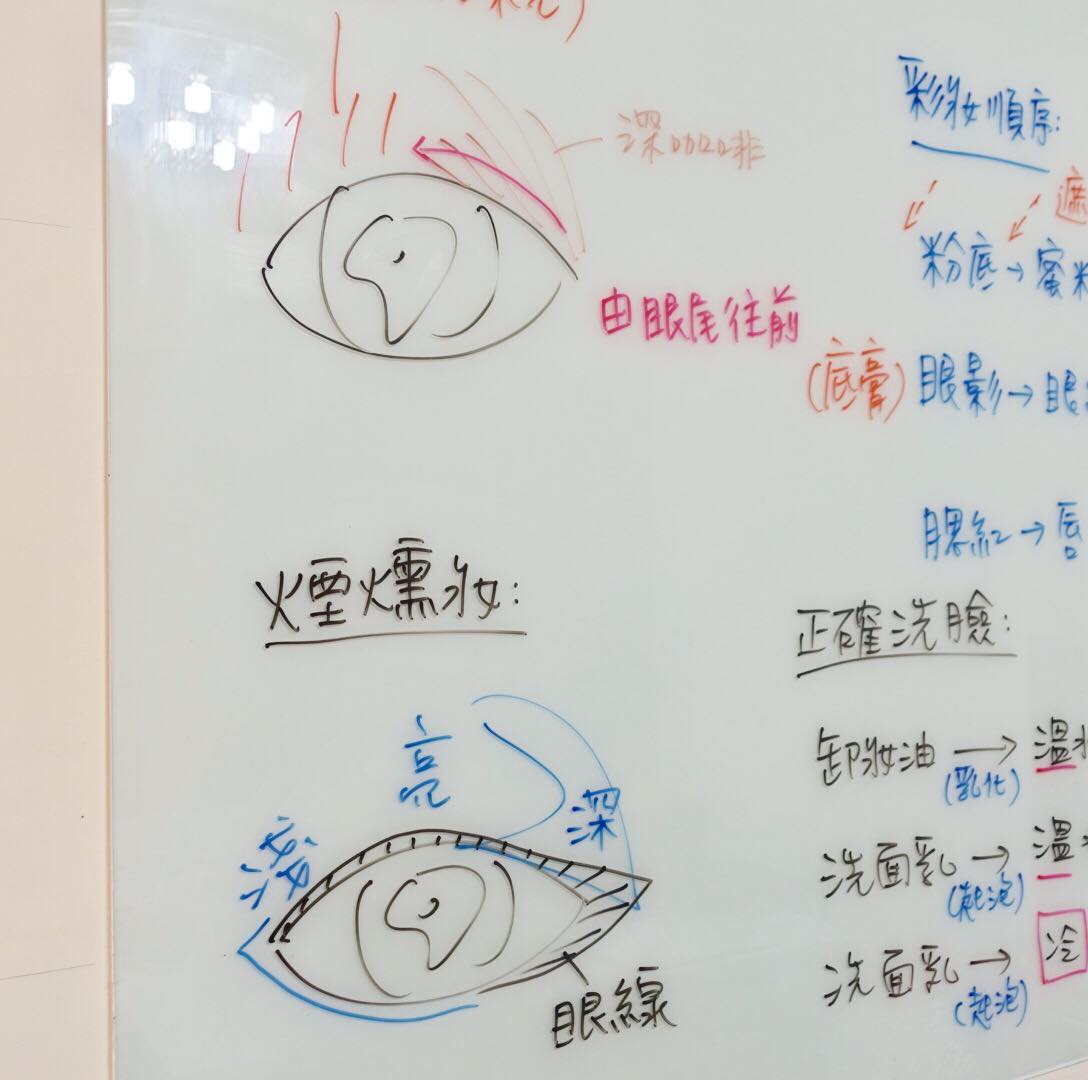 深咖啡
由眼尾往前
彩妝順序:
遮
粉底→蜜粉
(底膏)眼影→眼
腮紅→唇
煙燻妝:
亮
淺
深
眼線
正確洗臉:
卸妝油→溫水
(乳化)
洗面乳→溫
(起泡)
洗面乳→冷
(起泡)